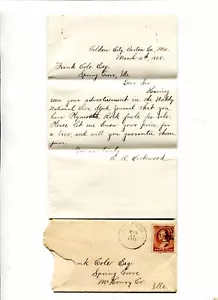 Golden City, Barton Co, Mo.
March 11th, 1885.
Frank Cole Esq.
Spring Grove, Ills
Dear Sir
Having
seen your advertisement in the Weekly
National Live Stock Journal that you
have Plymouth Rock fowls for sale.
Please let me know your price for
a trio, and will you guarantee them
pure.
Yours Truly
R. R. Lockwood
Frank Cole Esq
Spring Grove
McHenry Co.
Ills.